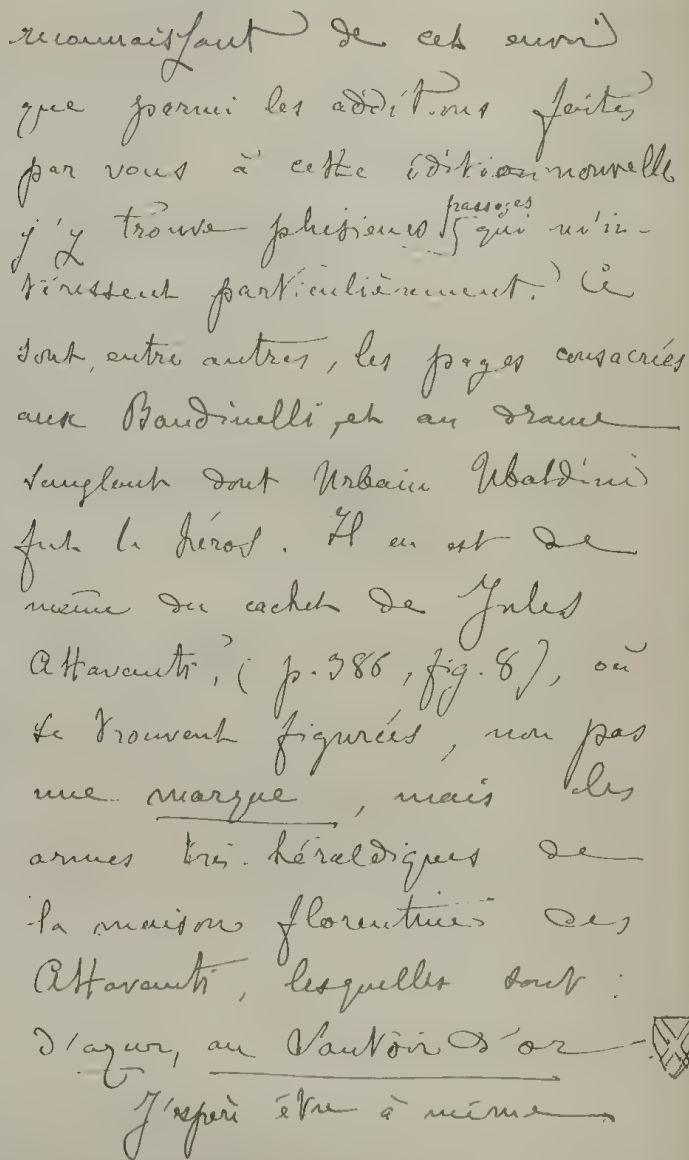 reconnaissant de cet envoi
que parmi les additions faites
par vous à cette édition nouvelle
j'y trouve plusieurs passages qui m'in-
téressent particulièrement. Ce
sont, entre autres, les pages consacrées
aux Bandinelli, et au drame
sanglant dont Urbain Ubaldini
fut le héros. Il en est de
même du cachet de Jules
Attavanti, (p. 386, fig. 8), où
se trouvent figurées, non pas
une marque, mais les
armes très-héraldiques de
la maison florentine des
Attavanti, lesquelles sont :
d'azur, au sautoir d'or
J'espère être à même